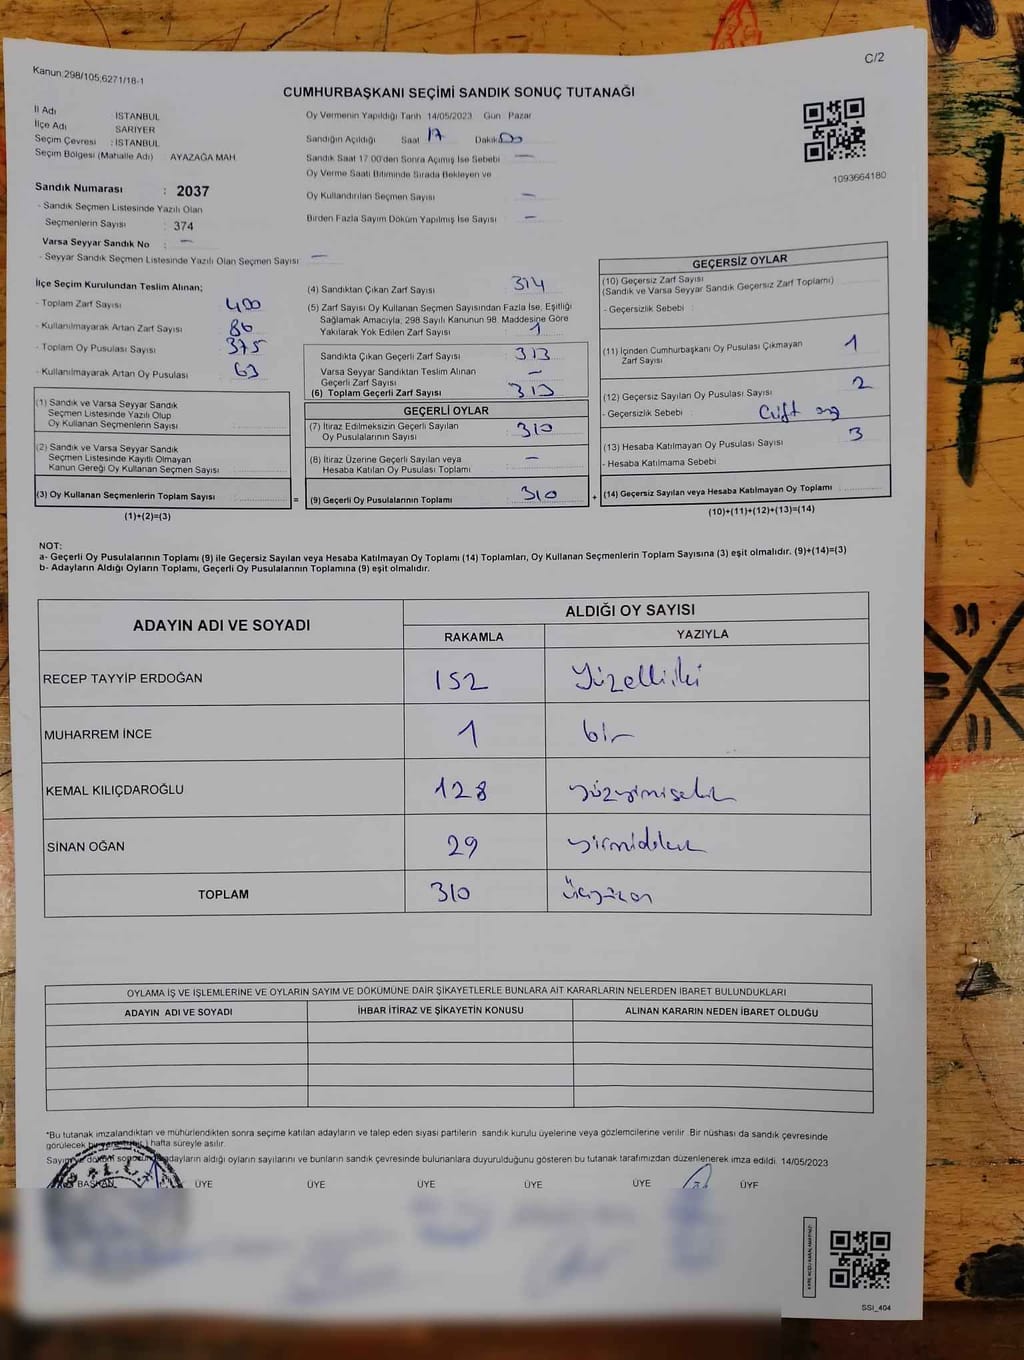 Kanun:298/105,6271/18-1
C/2
CUMHURBAŞKANI SEÇİMİ SANDIK SONUÇ TUTANAĞI
İl Adı İSTANBUL
İlçe Adı SARIYER
Seçim Çevresi : İSTANBUL
Seçim Bölgesi (Mahalle Adı) AYAZAĞA MAH.
Sandık Numarası : 2037
- Sandık Seçmen Listesinde Yazılı Olan
Seçmenlerin Sayısı : 374
Varsa Seyyar Sandık No : –
- Seyyar Sandık Seçmen Listesinde Yazılı Olan Seçmen Sayısı –
Oy Vermenin Yapıldığı Tarih 14/05/2023 Gün Pazar
Sandığın Açıldığı Saat 17 Dakika 00
Sandık Saat 17:00'den Sonra Açılmış İse Sebebi –
Oy Verme Saati Bitiminde Sırada Bekleyen ve
Oy Kullandırılan Seçmen Sayısı –
Birden Fazla Sayım Döküm Yapılmış İse Sayısı –
1093664180
İlçe Seçim Kurulundan Teslim Alınan;
- Toplam Zarf Sayısı 400
- Kullanılmayarak Artan Zarf Sayısı 86
- Toplam Oy Pusulası Sayısı 375
- Kullanılmayarak Artan Oy Pusulası 63
(1) Sandık ve Varsa Seyyar Sandık
Seçmen Listesinde Yazılı Olup
Oy Kullanan Seçmenlerin Sayısı
(2) Sandık ve Varsa Seyyar Sandık
Seçmen Listesinde Kayıtlı Olmayan
Kanun Gereği Oy Kullanan Seçmen Sayısı
(3) Oy Kullanan Seçmenlerin Toplam Sayısı =
(1)+(2)=(3)
(4) Sandıktan Çıkan Zarf Sayısı 314
(5) Zarf Sayısı Oy Kullanan Seçmen Sayısından Fazla İse, Eşitliği
Sağlamak Amacıyla, 298 Sayılı Kanunun 98. Maddesine Göre
Yakılarak Yok Edilen Zarf Sayısı 1
Sandıkta Çıkan Geçerli Zarf Sayısı 313
Varsa Seyyar Sandıktan Teslim Alınan
Geçerli Zarf Sayısı –
(6) Toplam Geçerli Zarf Sayısı 313
GEÇERLİ OYLAR
(7) İtiraz Edilmeksizin Geçerli Sayılan
Oy Pusulalarının Sayısı 310
(8) İtiraz Üzerine Geçerli Sayılan veya
Hesaba Katılan Oy Pusulası Toplamı –
(9) Geçerli Oy Pusulalarının Toplamı 310 +
GEÇERSİZ OYLAR
(10) Geçersiz Zarf Sayısı
(Sandık ve Varsa Seyyar Sandık Geçersiz Zarf Toplamı)
- Geçersizlik Sebebi :
(11) İçinden Cumhurbaşkanı Oy Pusulası Çıkmayan
Zarf Sayısı 1
(12) Geçersiz Sayılan Oy Pusulası Sayısı 2
- Geçersizlik Sebebi Çift oy
(13) Hesaba Katılmayan Oy Pusulası Sayısı 3
- Hesaba Katılmama Sebebi
(14) Geçersiz Sayılan veya Hesaba Katılmayan Oy Toplamı
(10)+(11)+(12)+(13)=(14)
NOT:
a- Geçerli Oy Pusulalarının Toplamı (9) ile Geçersiz Sayılan veya Hesaba Katılmayan Oy Toplamı (14) Toplamları, Oy Kullanan Seçmenlerin Toplam Sayısına (3) eşit olmalıdır. (9)+(14)=(3)
b- Adayların Aldığı Oyların Toplamı, Geçerli Oy Pusulalarının Toplamına (9) eşit olmalıdır.
ADAYIN ADI VE SOYADI ALDIĞI OY SAYISI
RAKAMLA YAZIYLA
RECEP TAYYİP ERDOĞAN 152 Yüzelliiki
MUHARREM İNCE 1 bir
KEMAL KILIÇDAROĞLU 128 yüzyirmisekiz
SİNAN OĞAN 29 yirmidokuz
TOPLAM 310 Üçyüzon
OYLAMA İŞ VE İŞLEMLERİNE VE OYLARIN SAYIM VE DÖKÜMÜNE DAİR ŞİKAYETLERLE BUNLARA AİT KARARLARIN NELERDEN İBARET BULUNDUKLARI
ADAYIN ADI VE SOYADI İHBAR İTİRAZ VE ŞİKAYETİN KONUSU ALINAN KARARIN NEDEN İBARET OLDUĞU
*Bu tutanak imzalandıktan ve mühürlendikten sonra seçime katılan adayların ve talep eden siyasi partilerin sandık kurulu üyelerine veya gözlemcilerine verilir. Bir nüshası da sandık çevresinde
görülecek bir yere hafta süreyle asılır.
Sayım döküm sonucunda adayların aldığı oyların sayılarını ve bunların sandık çevresinde bulunanlara duyurulduğunu gösteren bu tutanak tarafımızdan düzenlenerek imza edildi. 14/05/2023
BAŞKAN ÜYE ÜYE ÜYE ÜYE ÜYE ÜYE
SSI_404